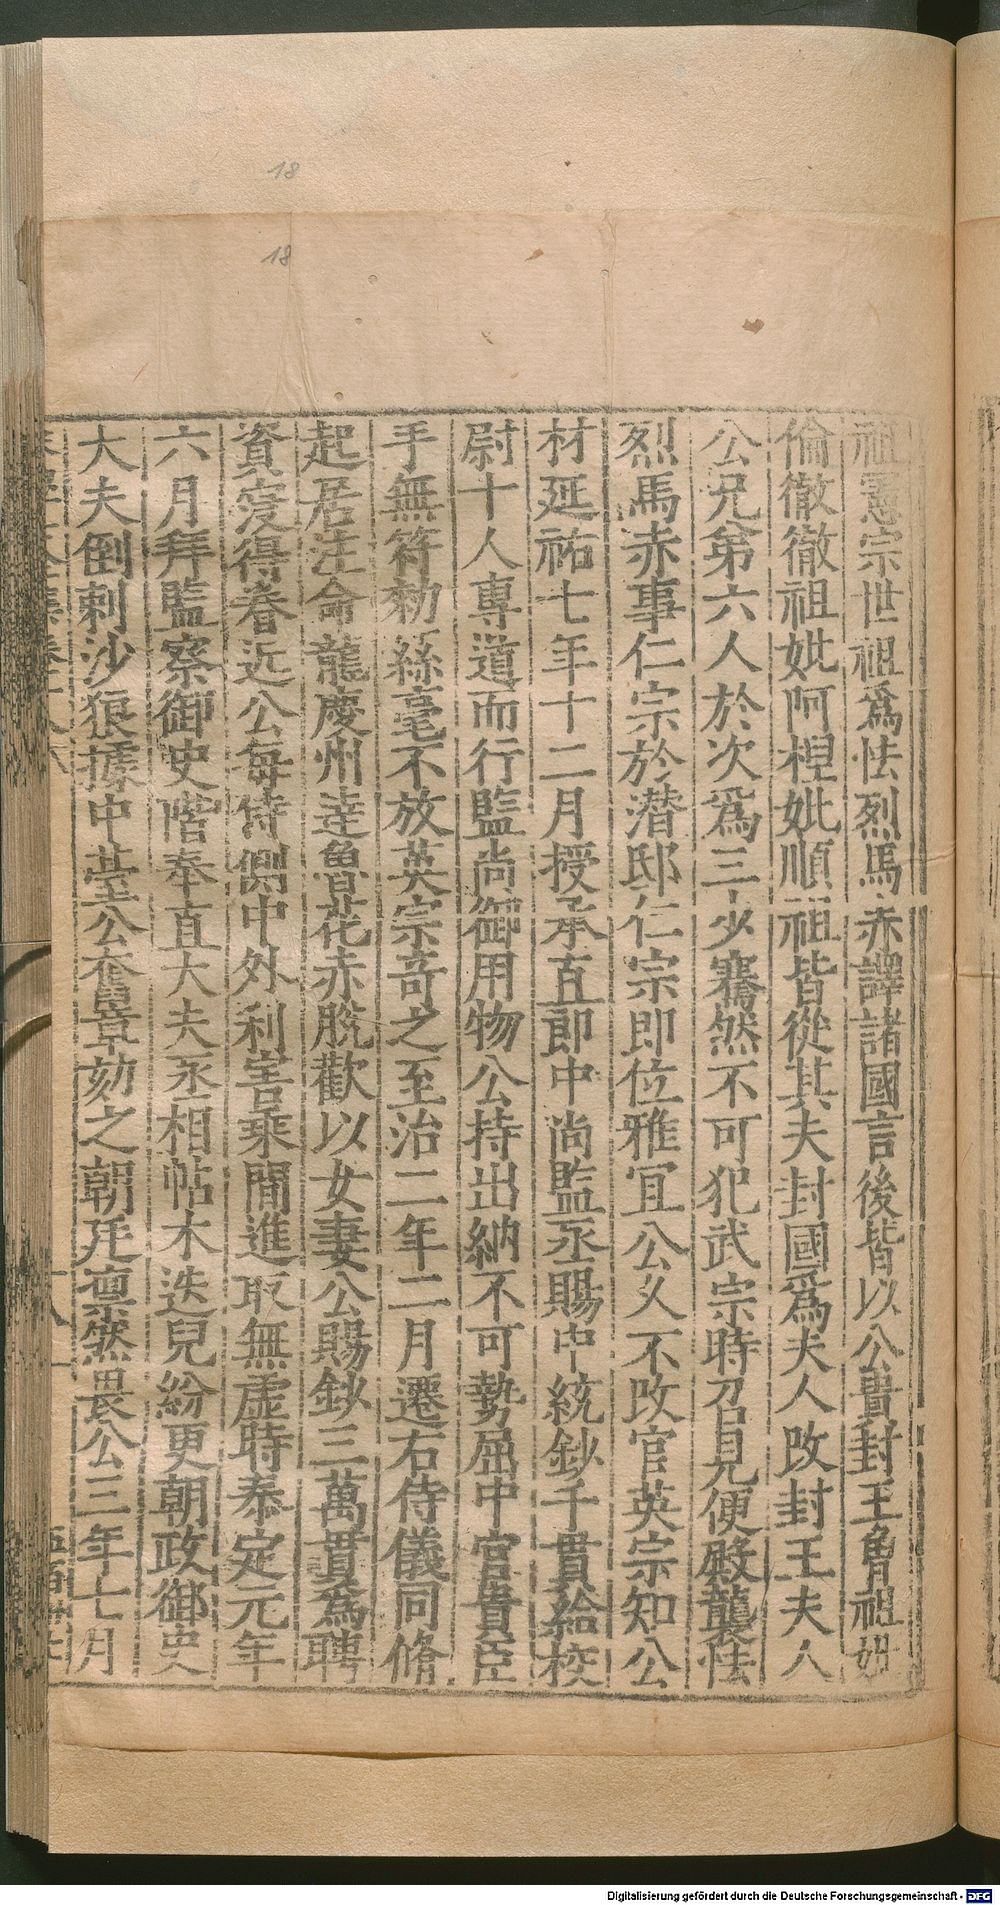 18
18
祖憲宗世祖爲怯烈馬赤譯諸國言後皆以公貴封王曾祖妣
倫徹徹祖妣阿桯妣順祖皆從其夫封國爲夫人改封王夫人
公兄弟六人於次爲三少騫然不可犯武宗時召見便殿襲怯
烈馬赤事仁宗於潛邸仁宗即位雅宜公乂不改官英宗知公
材延祐七年十二月授承直郎中尚監丞賜中統鈔千貫給校
尉十人專道而行監尚御用物公持出納不可勢屈中宫貴臣
手無符勑絲毫不放英宗奇之至治二年二月遷右侍儀同脩
起居注命龍慶州達魯花赤脫歡以女妻公賜鈔三萬貫爲聘
資寖得眷近公每侍側中外利害乘間進取無虛時泰定元年
六月拜監察御史階奉直大夫丞相帖木迭兒紛更朝政御史
大夫倒剌沙狼據中䑓公奮章劾之朝廷凛然畏公三年七月
Digitalisierung gefördert durch die Deutsche Forschungsgemeinschaft - DFG